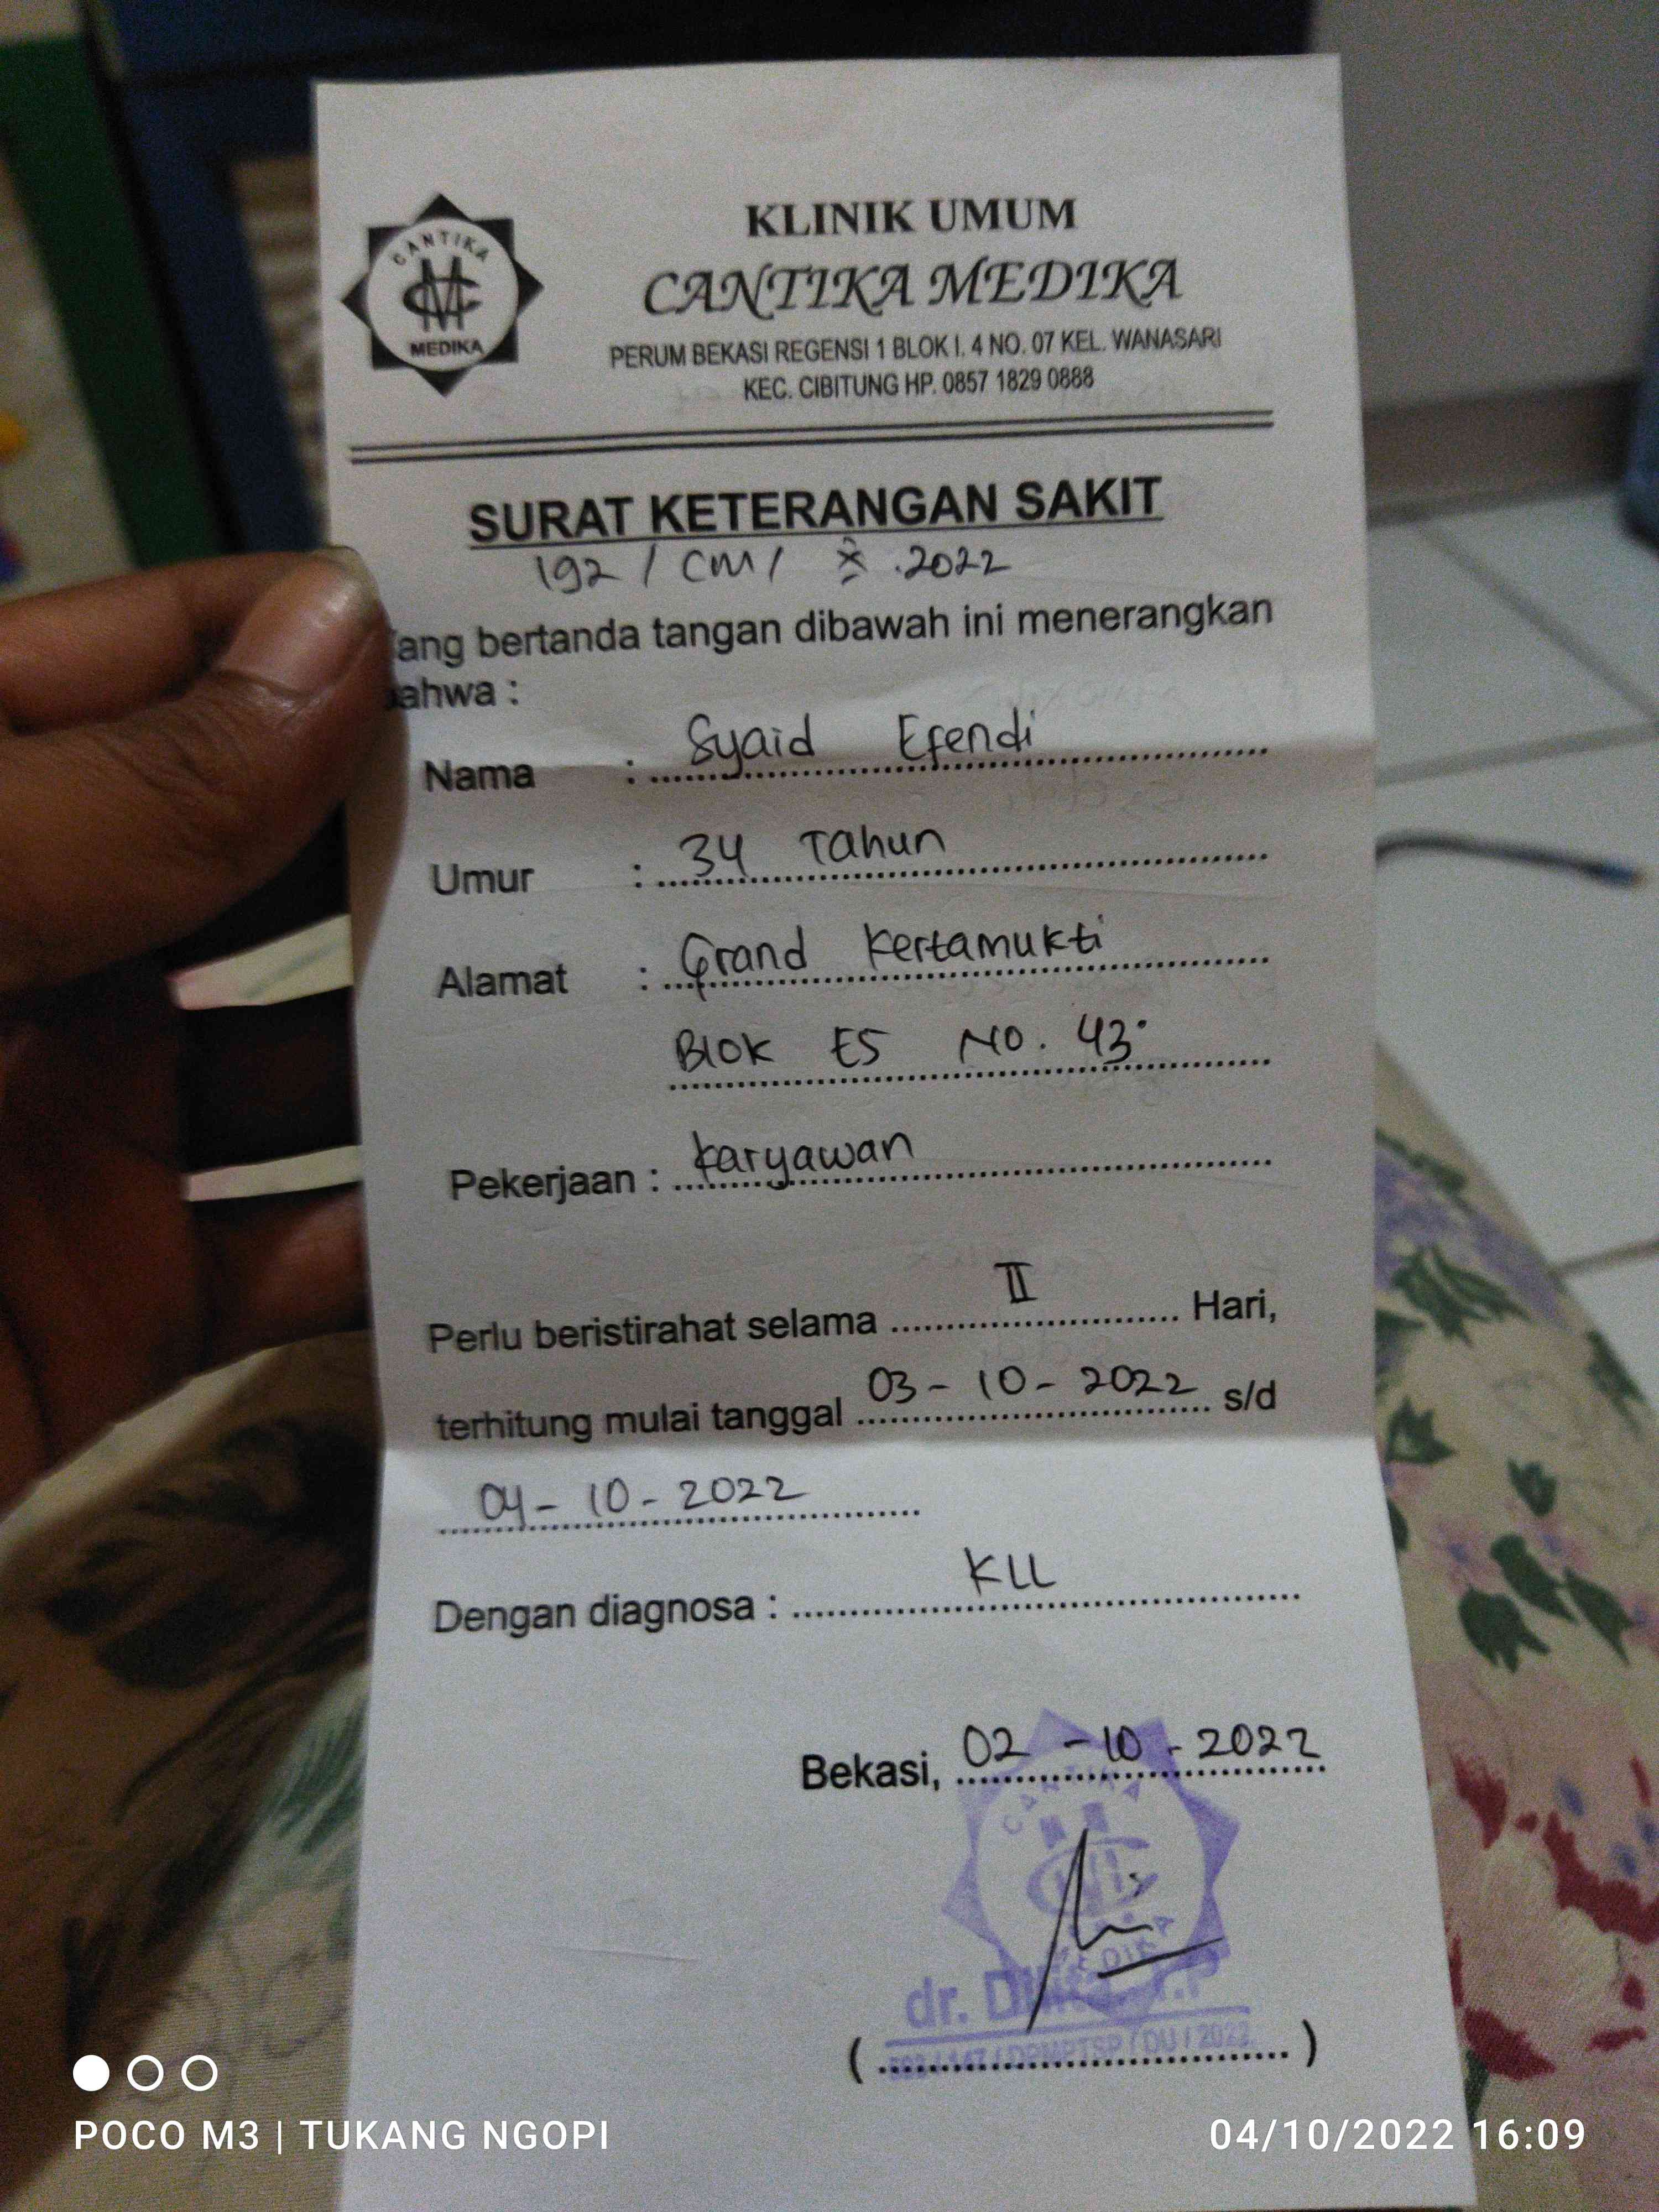 CANTIKA
CM
MEDIKA
KLINIK UMUM
CANTIKA MEDIKA
PERUM BEKASI REGENSI 1 BLOK I. 4 NO. 07 KEL. WANASARI
KEC. CIBITUNG HP. 0857 1829 0888
SURAT KETERANGAN SAKIT
192 / CM / X .2022
ang bertanda tangan dibawah ini menerangkan
ahwa :
Nama : Syaid Efendi
Umur : 34 Tahun
Alamat : Grand Kertamukti
Blok E5 No. 43
Pekerjaan : Karyawan
Perlu beristirahat selama II Hari,
terhitung mulai tanggal 03-10-2022 s/d
04-10-2022
Dengan diagnosa : KLL
Bekasi, 02-10-2022
CANTIKA
MEDIKA
dr.
/ 147 / DPMPTSP / DU / 2022
( )
POCO M3 | TUKANG NGOPI
04/10/2022 16:09